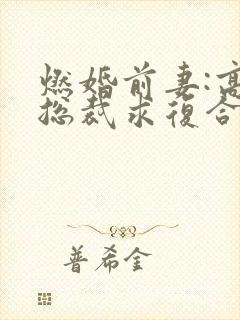 燃婚前妻:高
总裁求復合
普希金